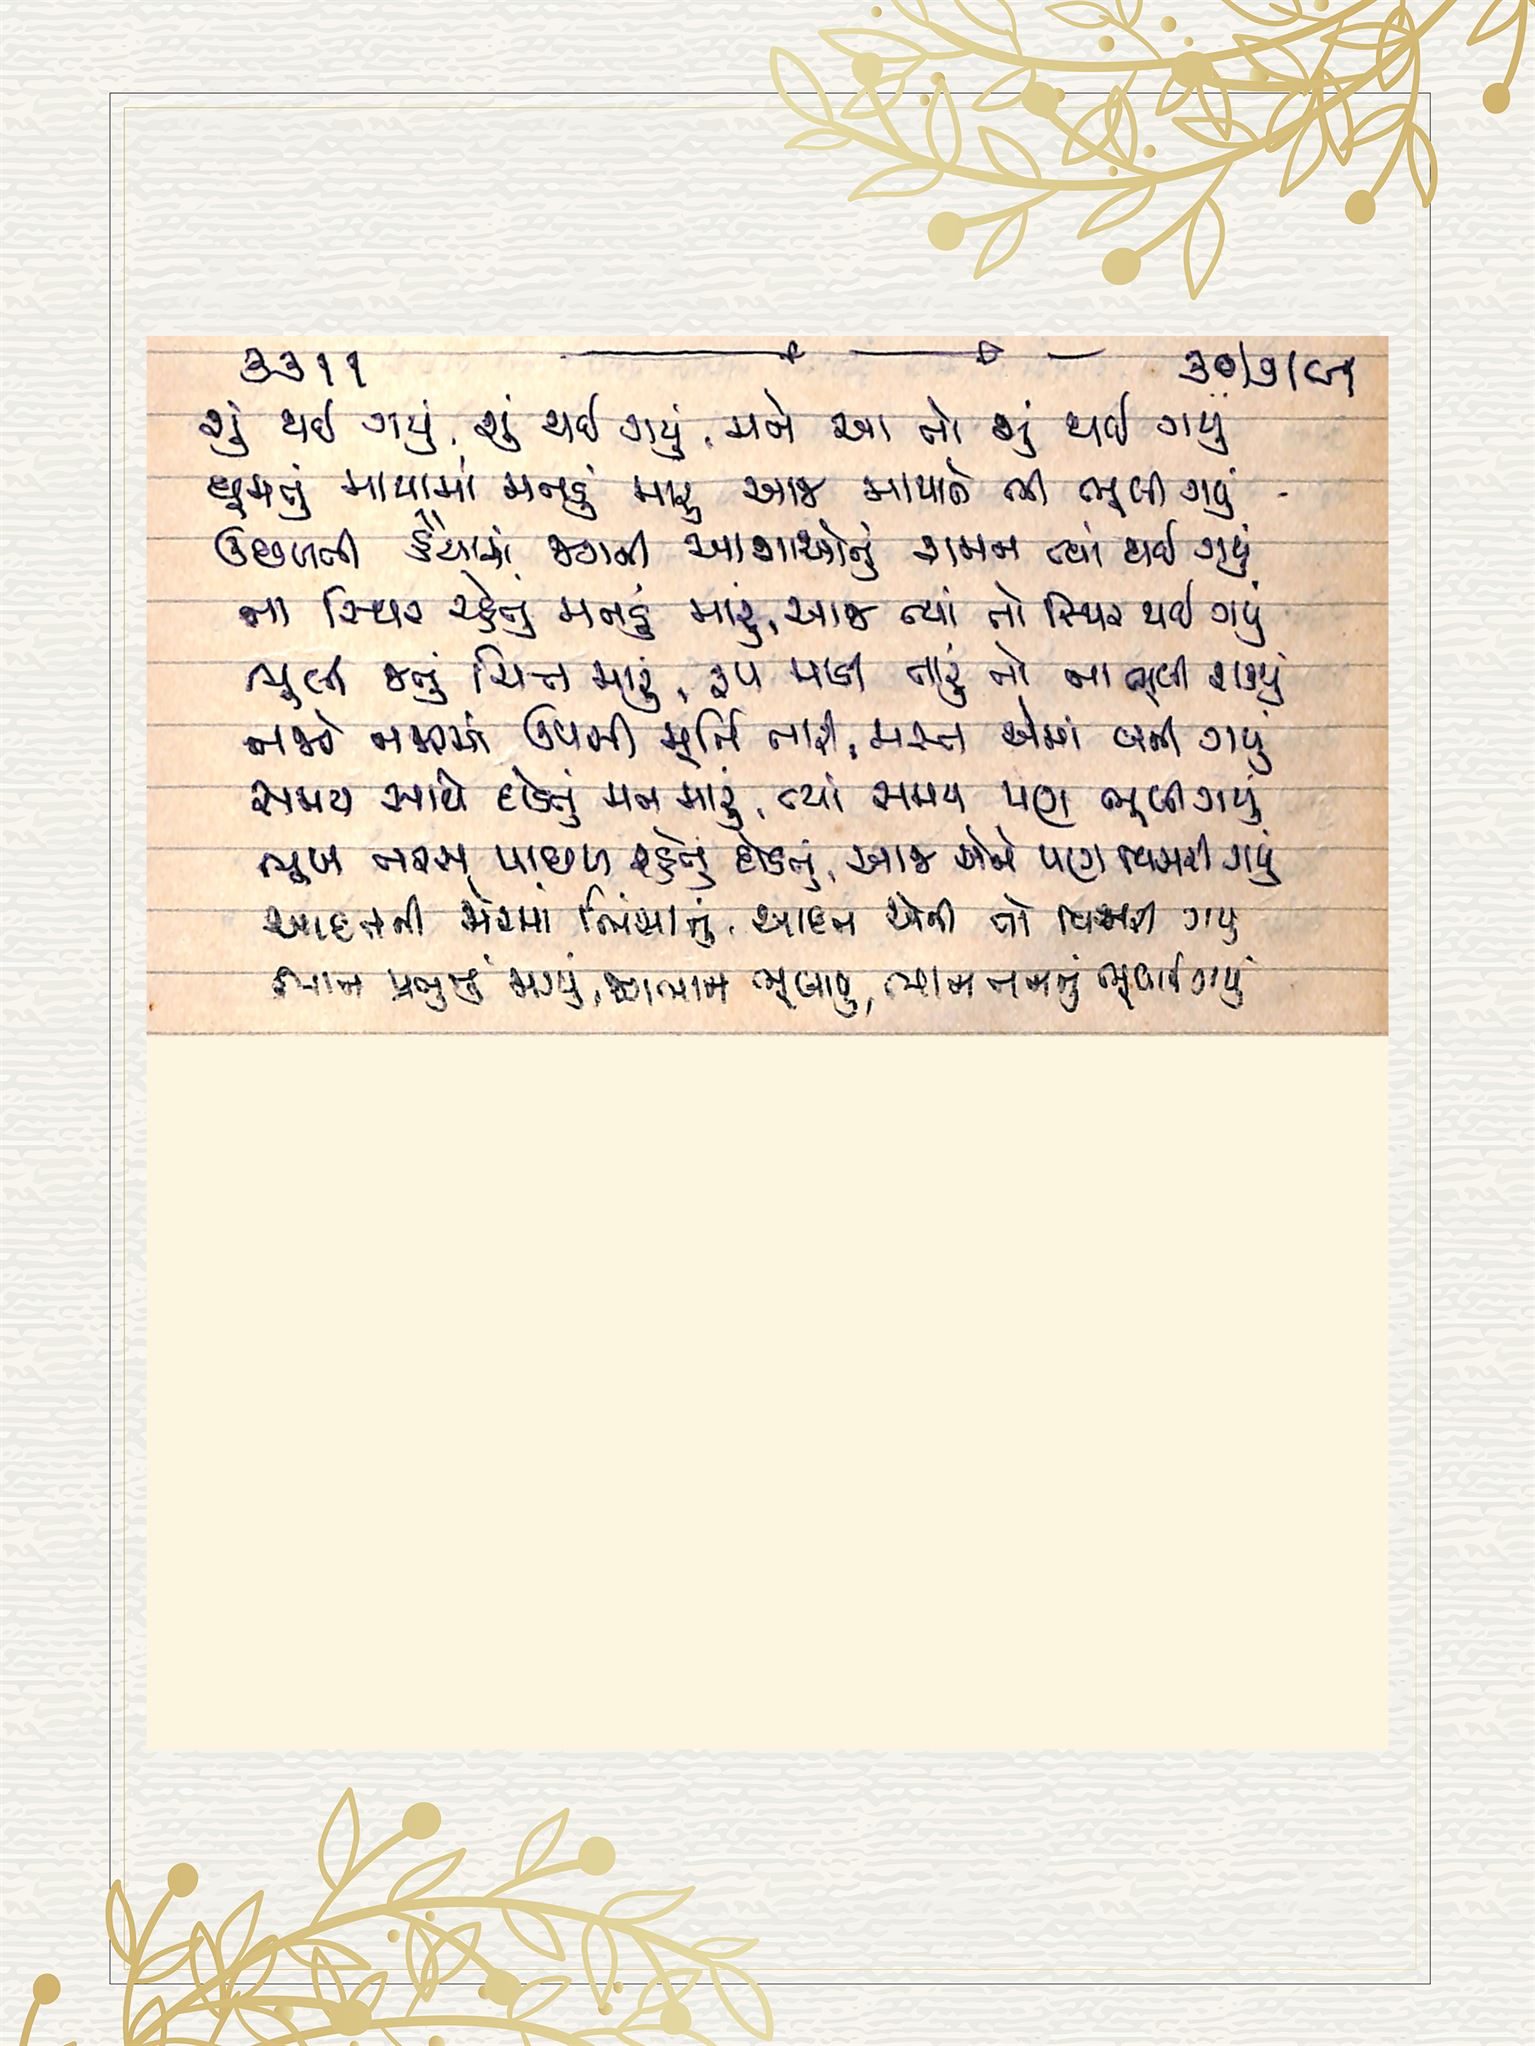 ૩૩૧૧ ૩૦/૭/૯૧
શું થઈ ગયું, શું થઈ ગયું, મને આ તો શું થઈ ગયું
ઘૂમતું માયામાં મનડું મારું આજ માયાને ભૂલી ગયું
ઉછળતી હૈયામાં જગની આશાઓનું શમન ત્યાં થઈ ગયું
ના સ્થિર રહેતું મનડું મારું, આજ ત્યાં તો સ્થિર થઈ ગયું
ભૂલી જતું ચિત્ત મારું, રૂપ તારું તો ના ભૂલી શક્યું
નજરે નજરમાં ઉપસી મૂર્તિ તારી, મસ્ત એમાં બની ગયું
સમય સાથે દોડતું મન મારું, ત્યાં સમય પણ ભૂલી ગયું
ભૂખ તરસ પાછળ રહેતું દોડતું, આજ એને પણ વિસરી ગયું
આદતની જોરમાં ખેંચાતું, આદત એની તો વિસરી ગયું
ભાન પ્રભુનું મળ્યું, ભાન ભૂલાયું, ભાન તનનું ભૂલાઈ ગયું